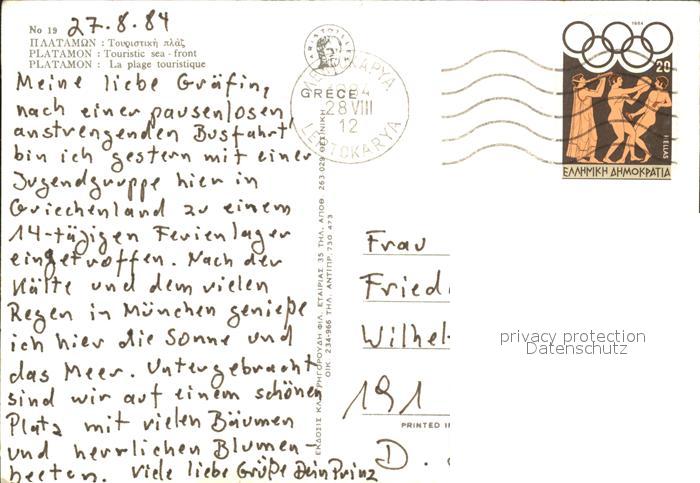 No 19 27.8.84
ΠΛΑΤΑΜΩΝ : Τουριστική πλάζ
PLATAMON : Touristic sea - front
PLATAMON : La plage touristique
Meine liebe Gräfin,
nach einer pausenlosen,
anstrengenden Busfahrt
bin ich gestern mit einer
Jugendgruppe hier in
Griechenland zu einem
14-tägigen Ferienlager
eingetroffen. Nach der
Kälte und dem vielen
Regen in München genieße
ich hier die Sonne und
das Meer. Untergebracht
sind wir auf einem schönen
Platz mit vielen Bäumen
und herrlichen Blumen-
beeten. Viele liebe Grüße Dein Prinz
GRECE
1984
28 VIII
12
LEPTOKARYA
1984
20
HELLAS
ΕΛΛΗΝΙΚΗ ΔΗΜΟΚΡΑΤΙΑ
Frau
Fried
Wilhel
191
PRINTED I
D.
privacy protection
Datenschutz